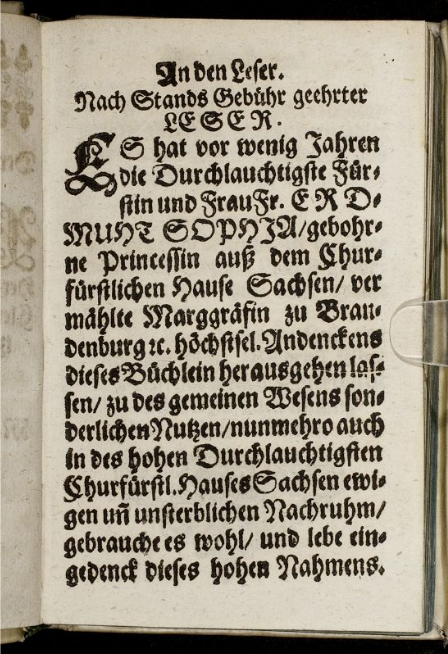 An den Leser.
Nach Stands Gebühr geehrter
LESER.
ES hat vor wenig Jahren
die Durchlauchtigste Für-
stin und Frau Fr. ERD-
MUHT SOPHIA/ gebohr-
ne Princessin auß dem Chur-
fürstlichen Hause Sachsen/ ver
mählte Marggräfin zu Bran-
denburg ꝛc. höchstsel. Andenckens
dieses Büchlein herausgehen las-
sen/ zu des gemeinen Wesens son-
derlichen Nutzen/ nunmehro auch
in des hohen Durchlauchtigsten
Churfürstl. Hauses Sachsen ewi-
gen uñ unsterblichen Nachruhm/
gebrauche es wohl/ und lebe ein-
gedenck dieses hohen Nahmens.